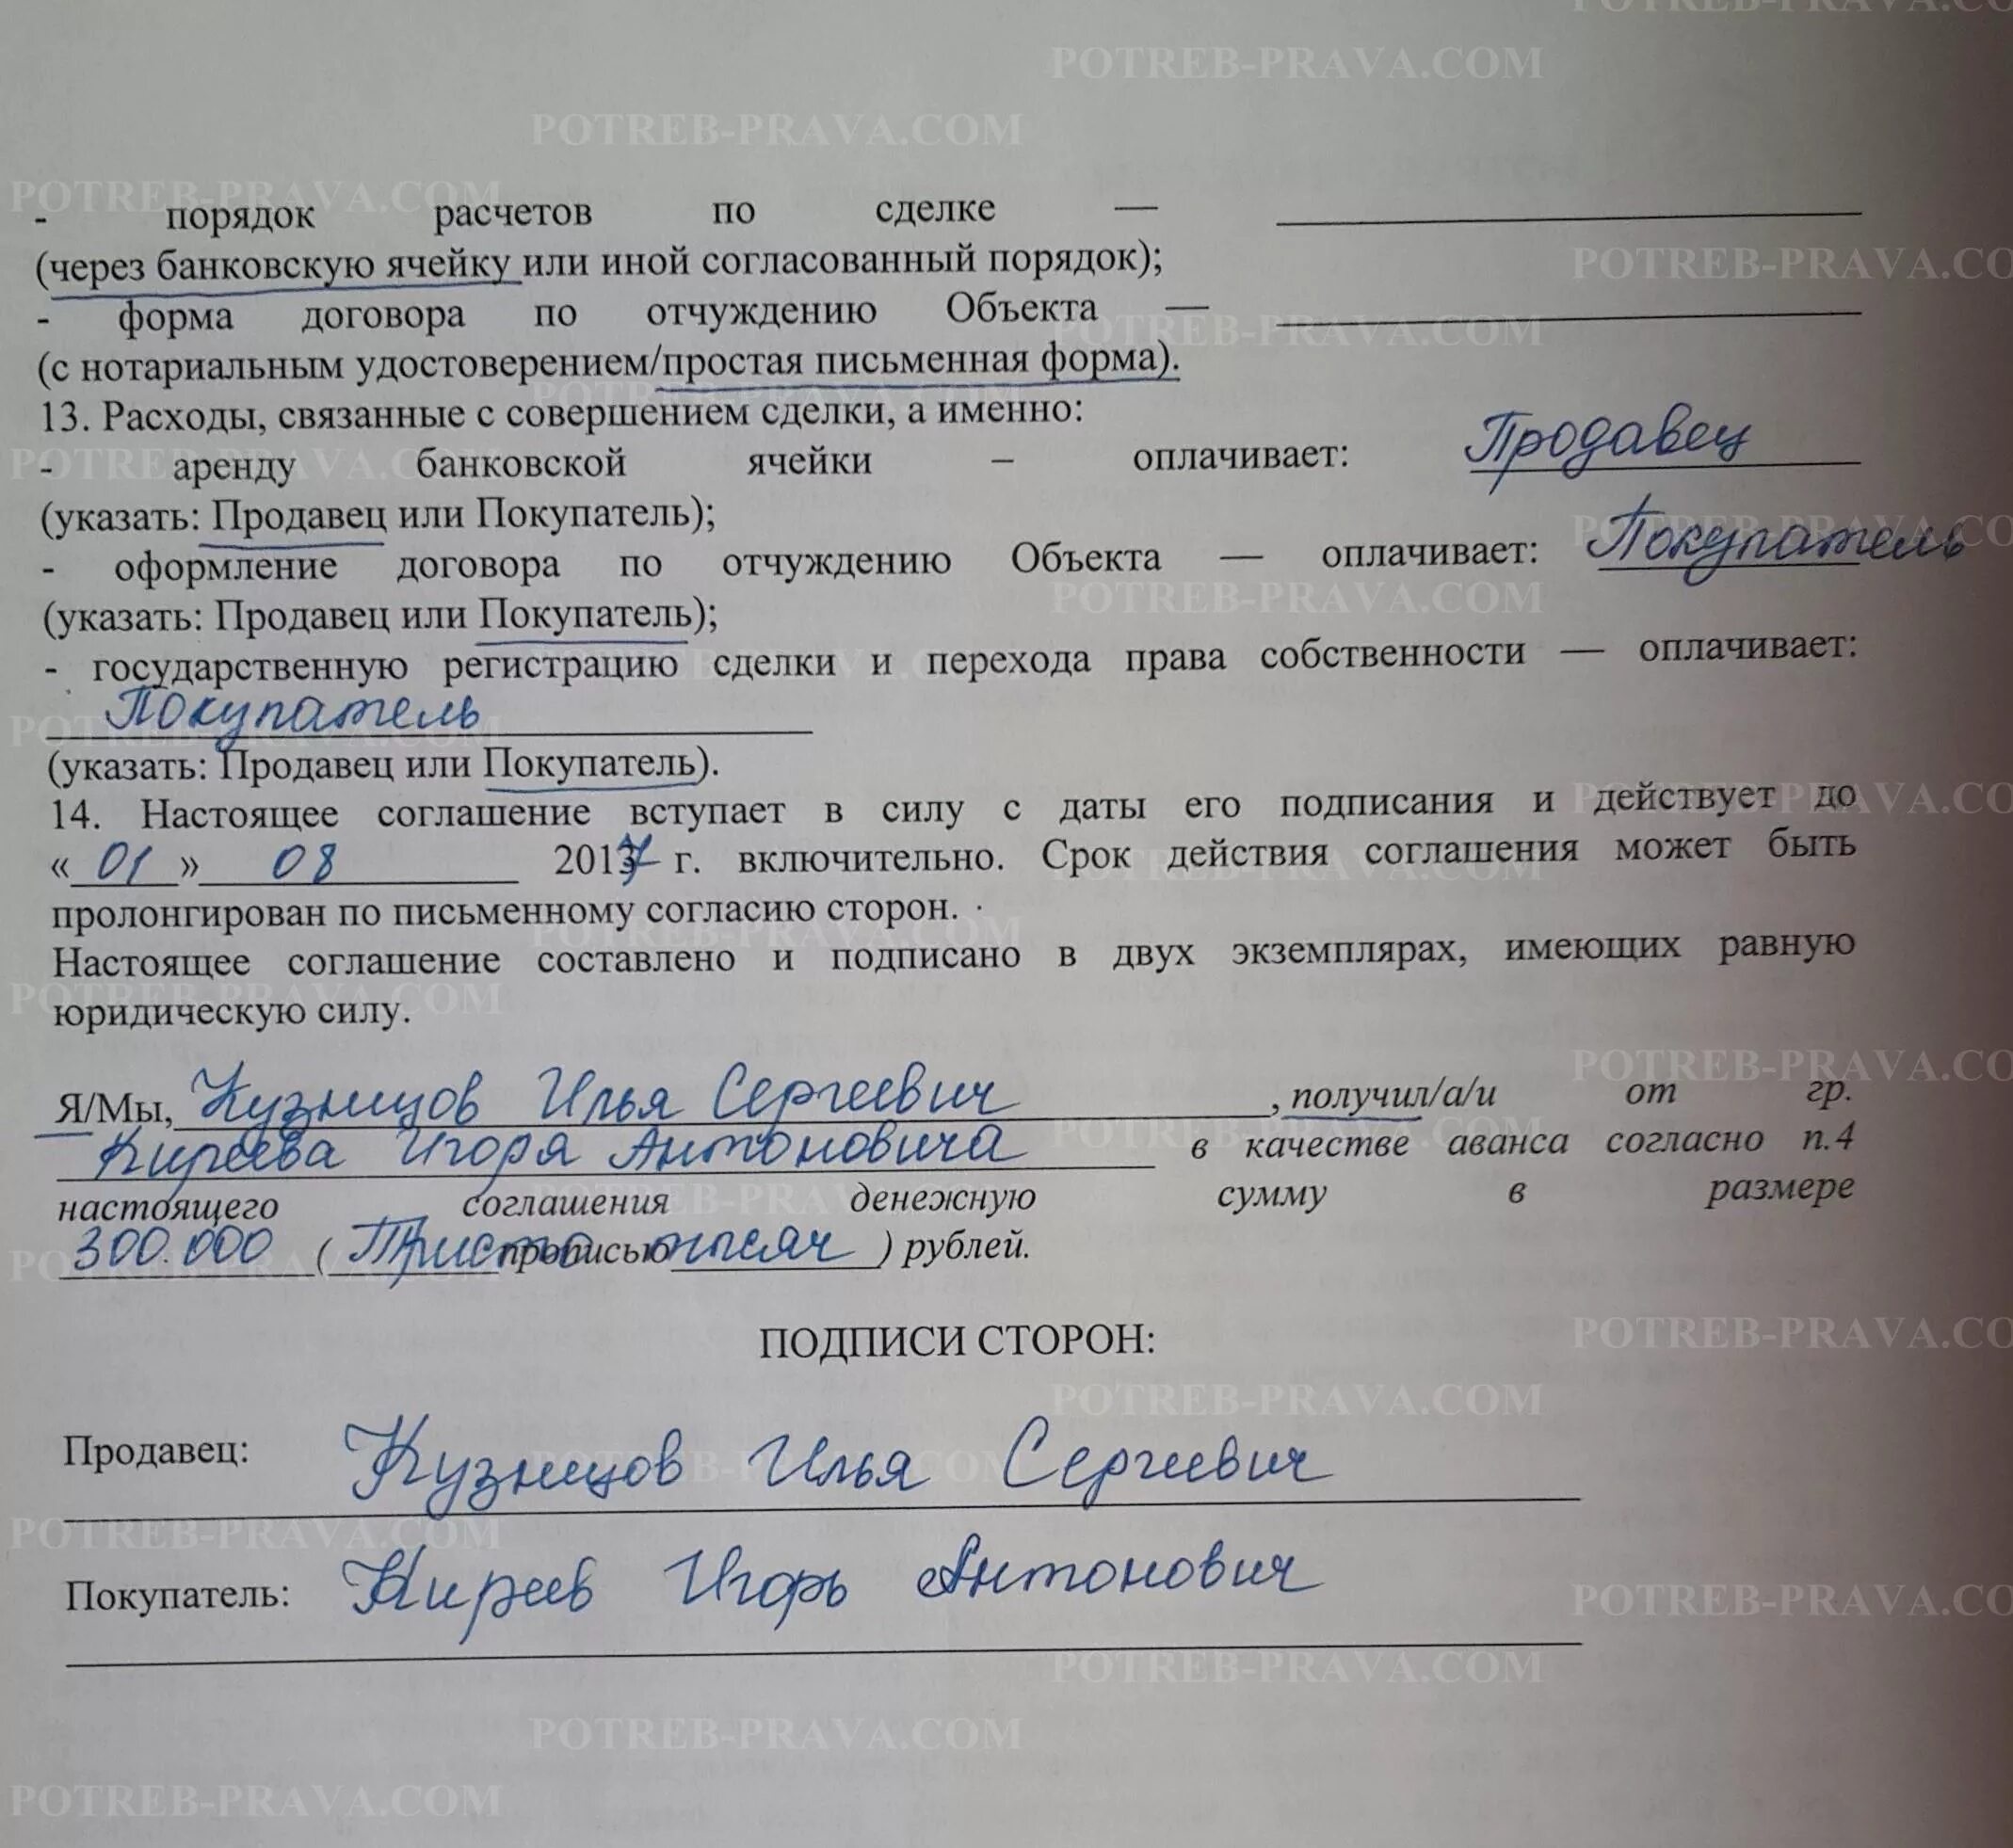 - порядок расчетов по сделке — ____________
(через банковскую ячейку или иной согласованный порядок);
- форма договора по отчуждению Объекта — ____________
(с нотариальным удостоверением/простая письменная форма).
13. Расходы, связанные с совершением сделки, а именно:
- аренду банковской ячейки – оплачивает: Продавец
(указать: Продавец или Покупатель);
- оформление договора по отчуждению Объекта — оплачивает: Покупатель
(указать: Продавец или Покупатель);
- государственную регистрацию сделки и перехода права собственности — оплачивает:
Покупатель
(указать: Продавец или Покупатель).
14. Настоящее соглашение вступает в силу с даты его подписания и действует до
«01» 08 2017 г. включительно. Срок действия соглашения может быть
пролонгирован по письменному согласию сторон.
Настоящее соглашение составлено и подписано в двух экземплярах, имеющих равную
юридическую силу.
Я/Мы, Кузницов Илья Сергеевич, получил/а/и от гр.
Киреева Игоря Антоновича в качестве аванса согласно п.4
настоящего соглашения денежную сумму в размере
300.000 (Триста прописью тысяч) рублей.
ПОДПИСИ СТОРОН:
Продавец: Кузницов Илья Сергеевич
Покупатель: Киреев Игорь Антонович
POTREB-PRAVA.COM